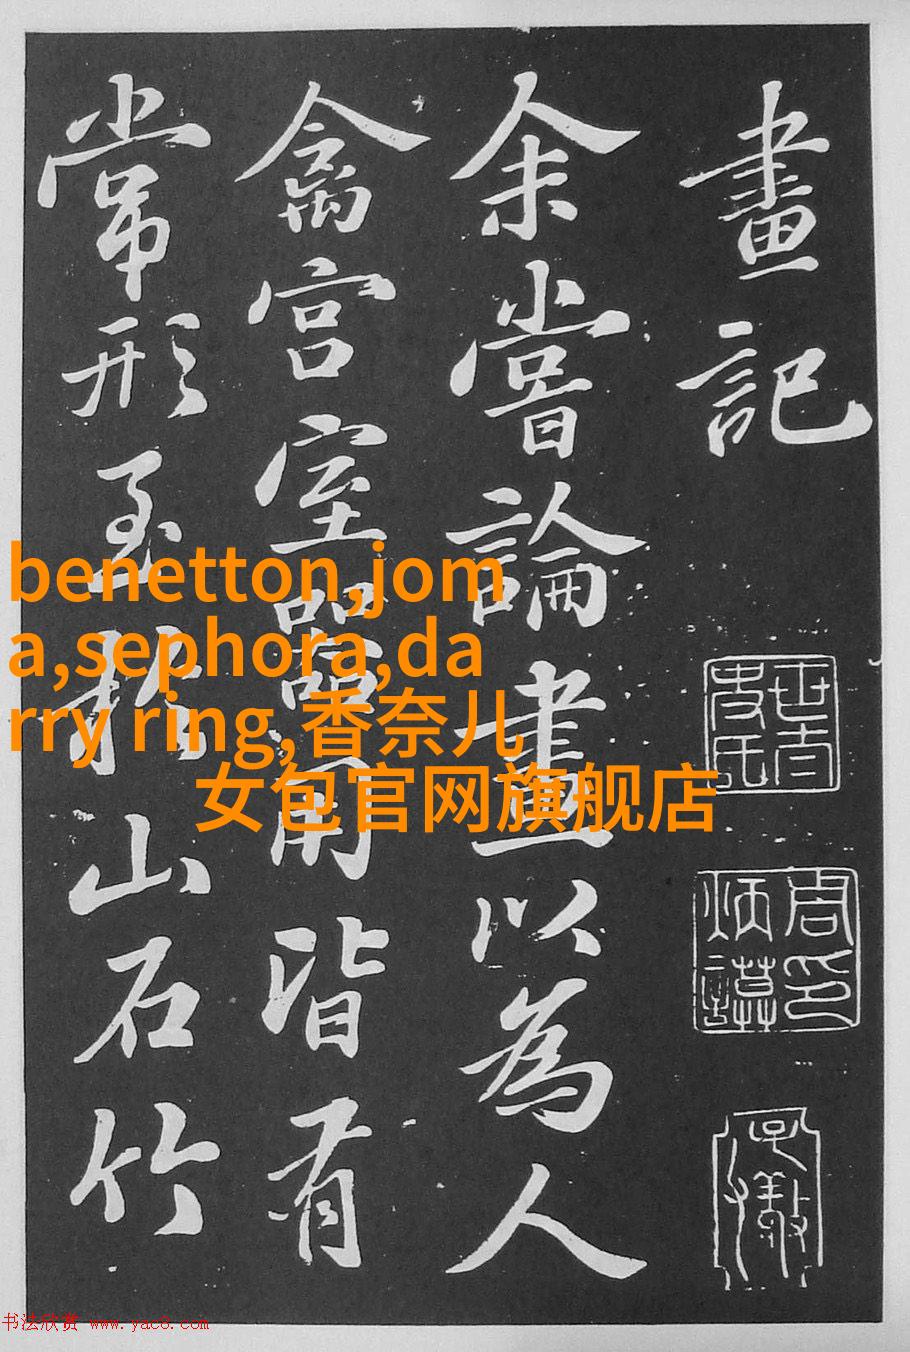 畫記
余嘗論畫以為人
禽宮室器用皆有
常形至於山石竹
周印炳謨
benetton,jom
a,sephora,da
rry ring,香奈儿
女包官网旗舰店
书法欣赏 www.yac8.com